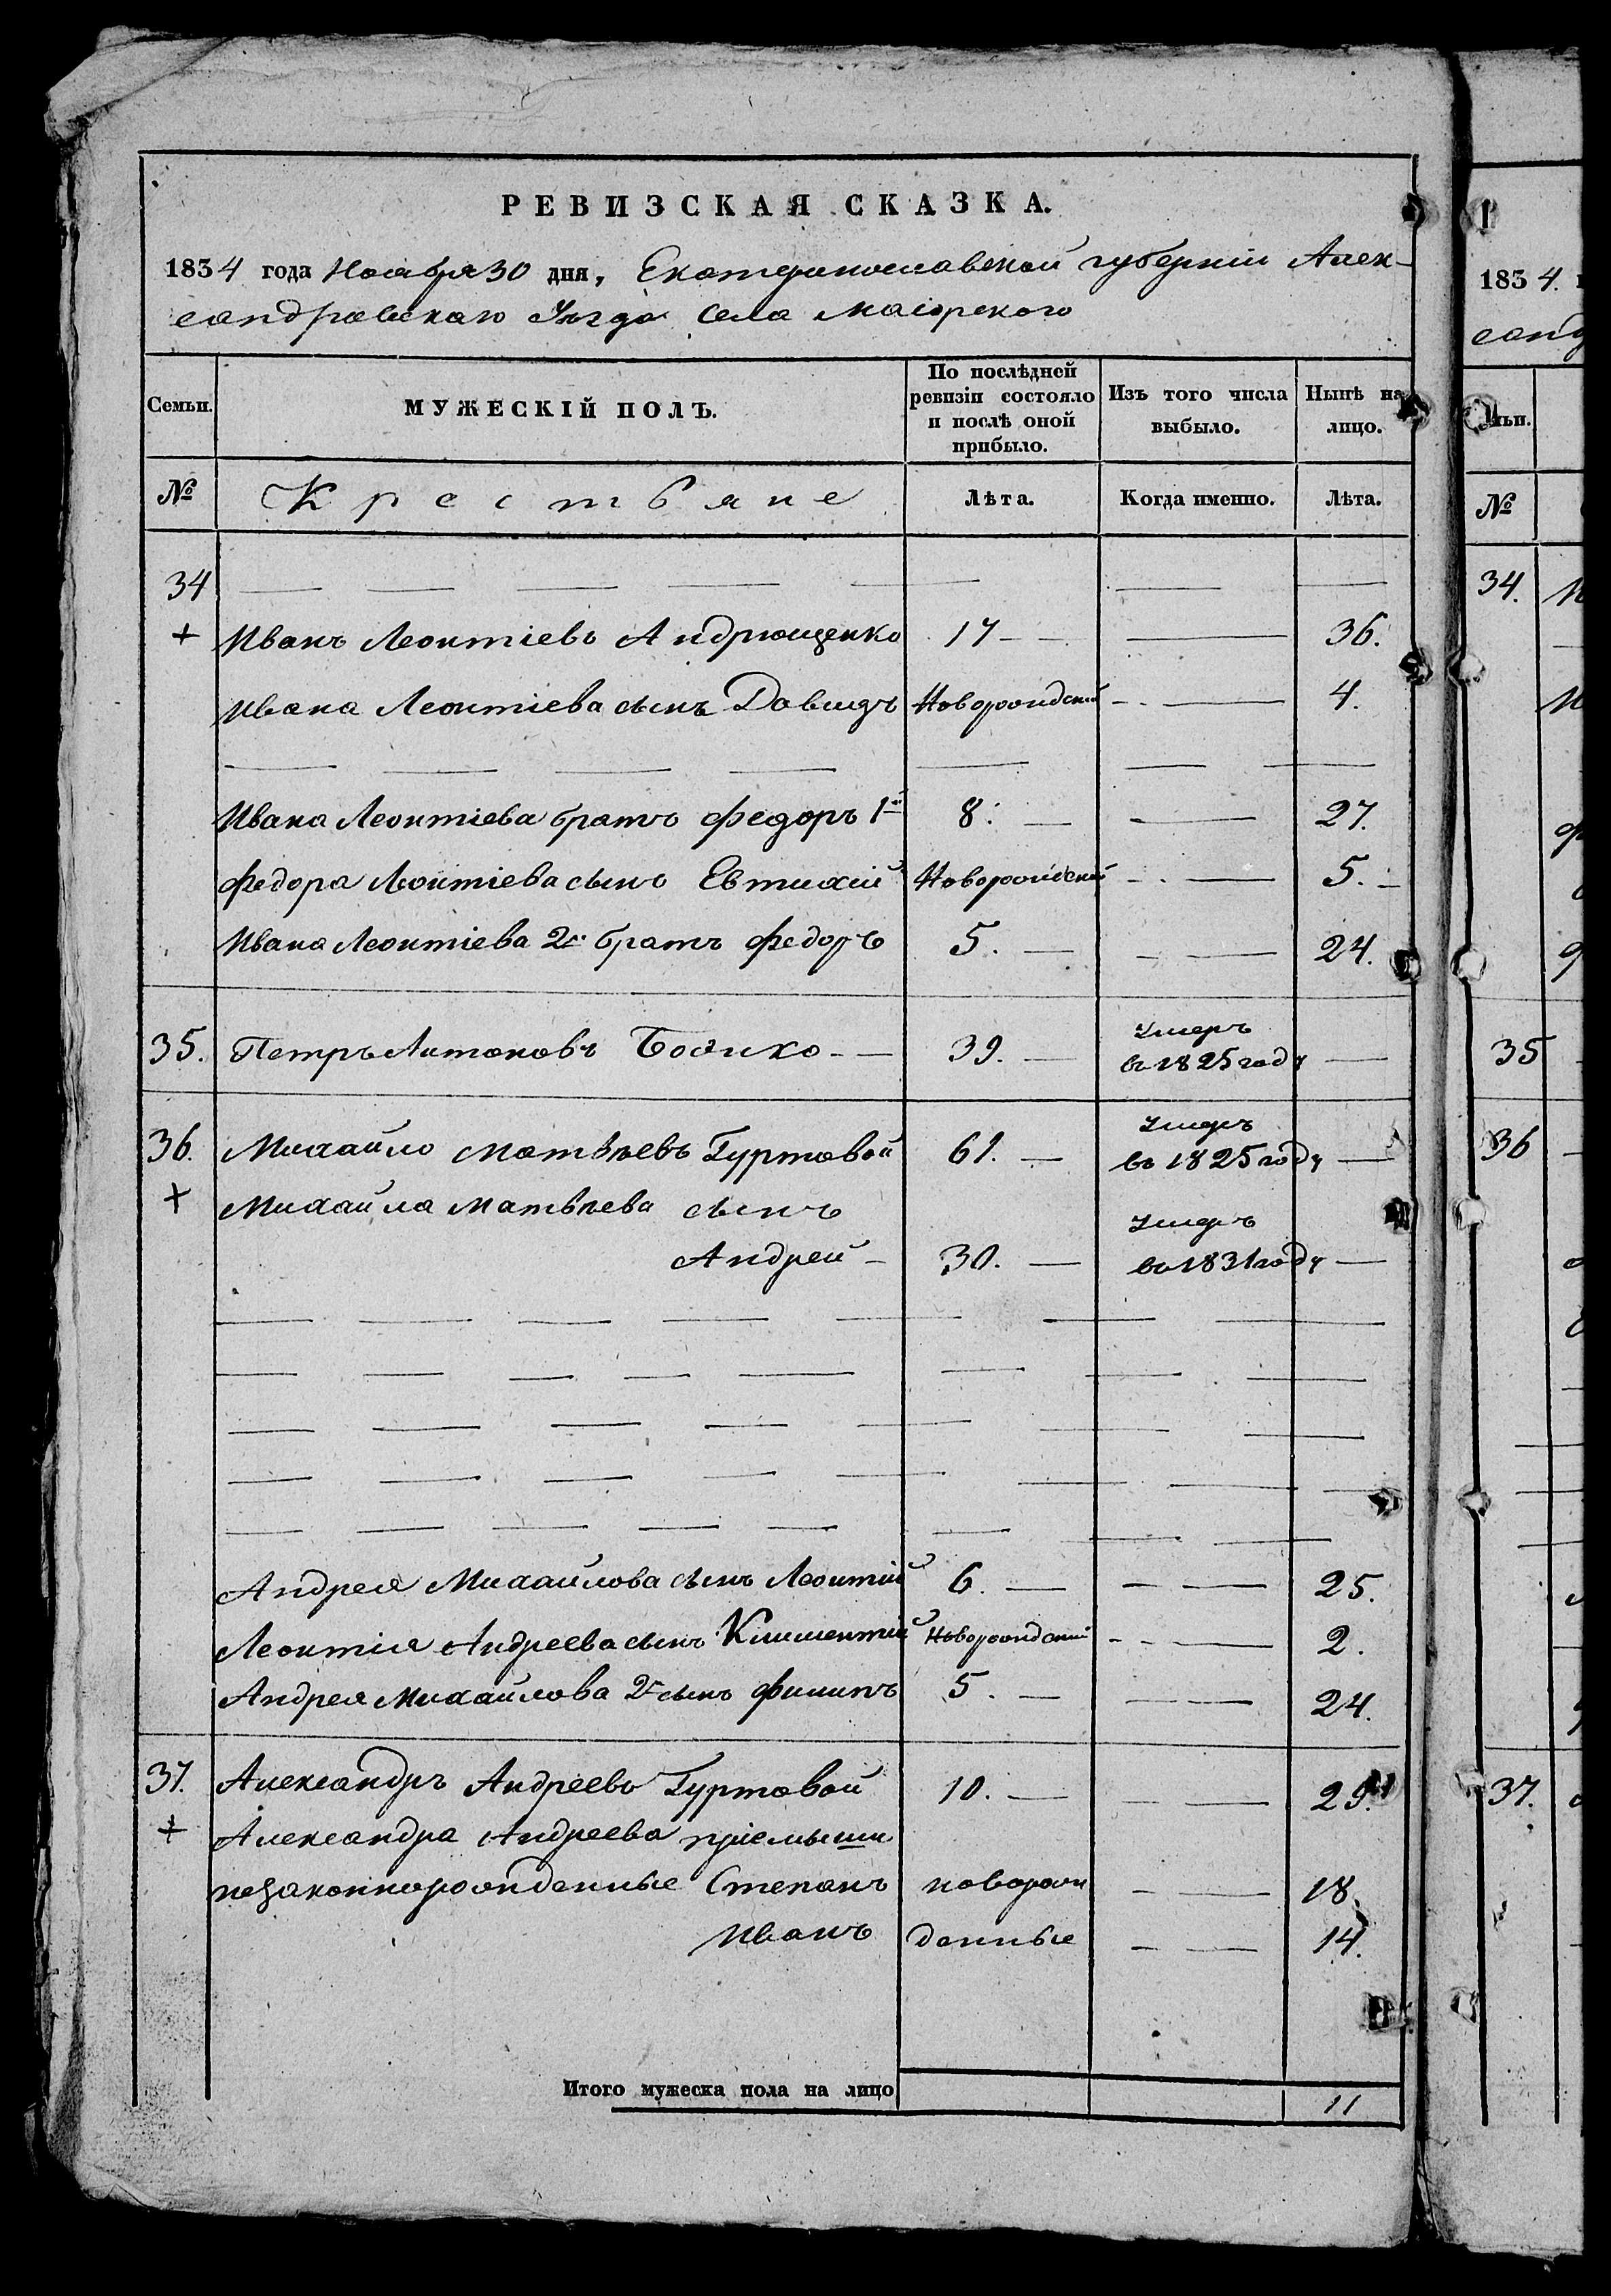 РЕВИЗСКАЯ СКАЗКА.
1834 года Ноября 30 дня, Екатеринославской губерніи Алек-
сандровскаго Уезда Села Маіорского
Семьи.
МУЖЕСКІЙ ПОЛЪ.
По послѣдней ревизіи состояло и послѣ оной прибыло.
Изъ того числа выбыло.
Нынѣ на лицо.
№ Крестьяне Лѣта. Когда именно. Лѣта.
34
+ Иванъ Леонтіевъ Андрющенко 17 — — 36.
Ивана Леонтіева сынъ Давидъ Новорожденый — 4.
Ивана Леонтіева братъ Федоръ 1й 8. — — 27.
Федора Леонтіева сынъ Евтихій Новорожденый — 5. —
Ивана Леонтіева 2й братъ Федоръ 5. — — 24.
35. Петръ Антоновъ — 39. — Умеръ въ 1825 году —
36. Михайло Матвѣевъ Гуртовой 61. — Умеръ въ 1825 году —
+ Михайла Матвѣева сынъ
Андрей — 30. — Умеръ въ 1831 году —
Андрея Михайлова сынъ Леонтій 6. — — 25.
Леонтія Андреева сынъ Климентій Новорожденый — 2.
Андрея Михайлова 2й сынъ Филипъ 5. — — 24.
37. Александръ Андреевъ Гуртовой 10. — — 29.
+ Александра Андреева пріемыши
незаконнорожденные Степанъ новорож — 18.
Иванъ денные — 14.
Итого мужеска пола на лицо 11
183 4.
санд
ньи.
№
34.
35
36
37.